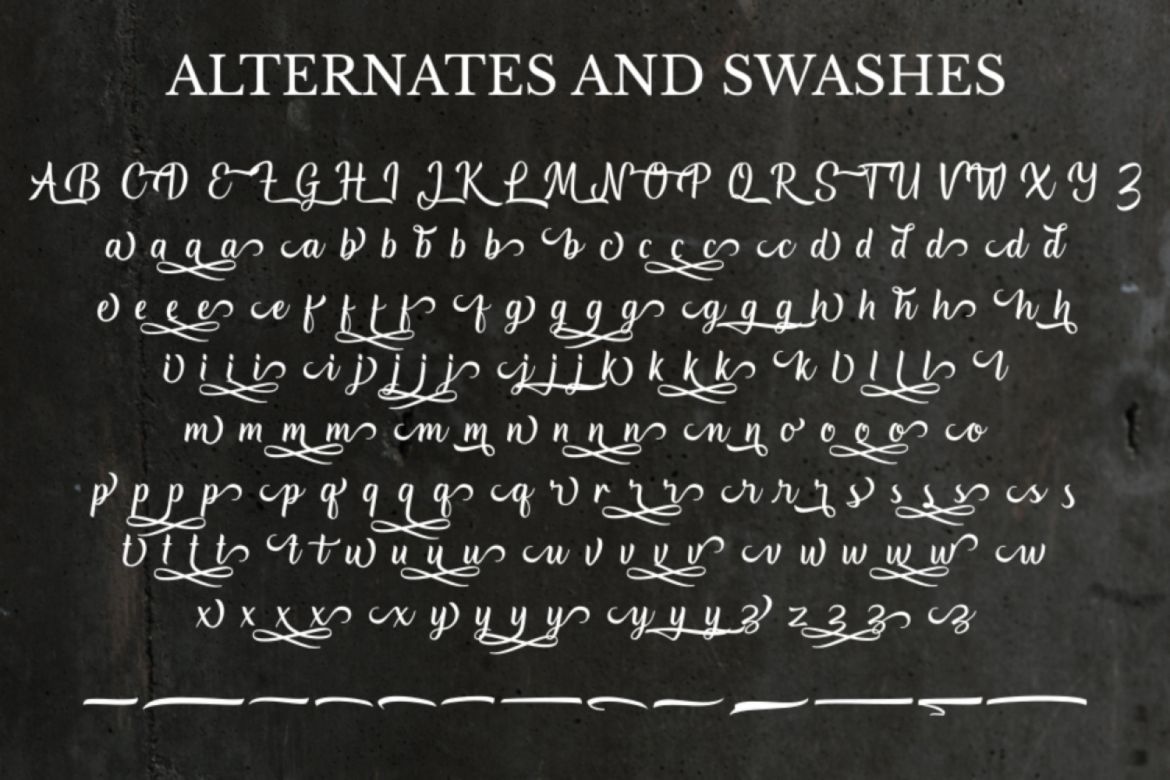 ALTERNATES AND SWASHES
AB CD EFGHI JKLMNOP QRSTU VW X Y Z
a a a a a b b b b b b c c c c c d d d d d d
e e e e e f f f f f g g g g g g g g h h h h h h
i i i i i j j j j j j j k k k k k l l l l l
m m m m m m n n n n n n o o o o o
p p p p p q q q q q r r r r r r r s s s s s s
t t t t t t u u u u u v v v v v w w w w w
x x x x x y y y y y y y z z z z z